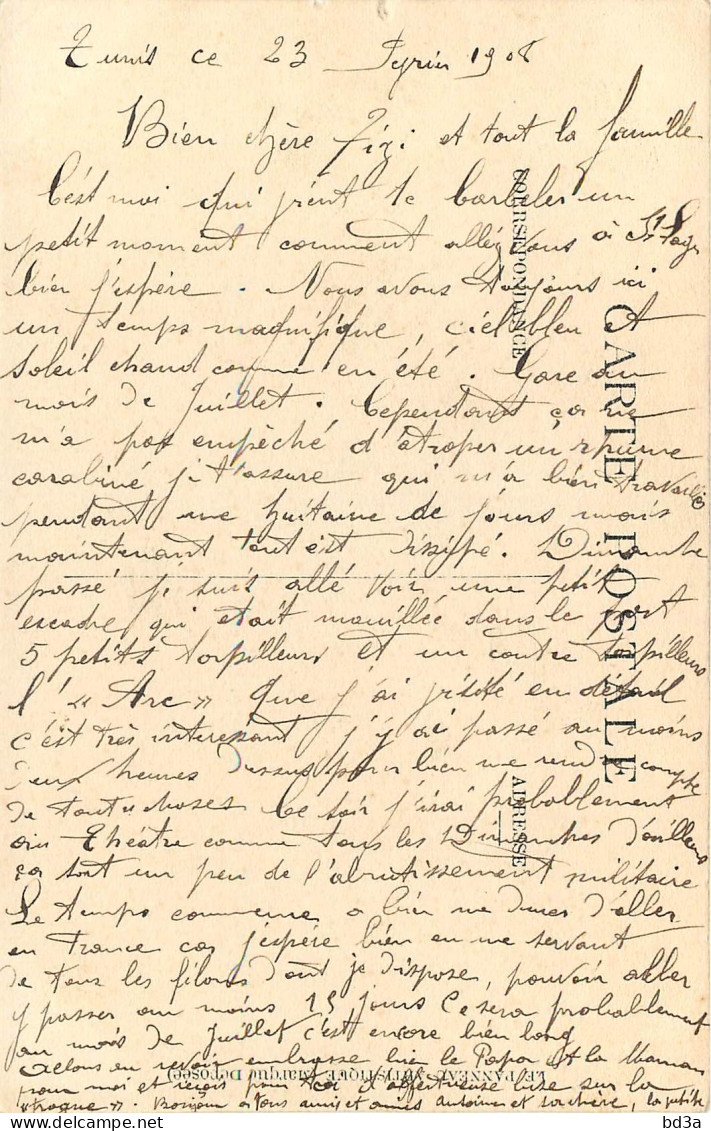 Tunis ce 23 1908
Bien chère Zizi et tout la famille
C'est moi qui vient te barber un
petit moment comment allez vous à
bien j'espère. Nous avons toujours ici
un temps magnifique, ciel bleu et
soleil chaud comme en été. Gare au
mois de Juillet. Cependant ça ne
m'a pas empêché d'atraper un rhume
carabiné je t'assure qui m'a bien travaillé
pendant une huitaine de jours mais
maintenant tout est dissipé. Dimanche
passé je suis allé voir une petit
escadre qui était mouillée dans le port
5 petits torpilleurs et un contre torpilleurs
l' « Arc » que j'ai visité en détail
c'est très interessant j'y ai passé au moins
deux heures dessus pour bien me rendre compte
de toute choses Ce soir j'irai probablement
au théâtre comme tous les Dimanches d'ailleurs
ça sort un peu de l'abrutissement militaire
Le temps commence a bien me durer d'aller
en France car j'espère bien en me servant
de tous les filons dont je dispose, pouvoir aller
y passer au moins 15 jours Ce sera probablement
au mois de juillet c'est encore bien long
Allons au revoir embrasse bien le Papa et la Maman
pour moi et reçois pour toi d'affectueuse bise sur la
Bonjour a tous amis et amies antoine et la petite
CARTE POSTALE
CORRESPONDANCE
ADRESSE
LE PANNEAU ARTISTIQUE (Marque Déposée)
bd3a